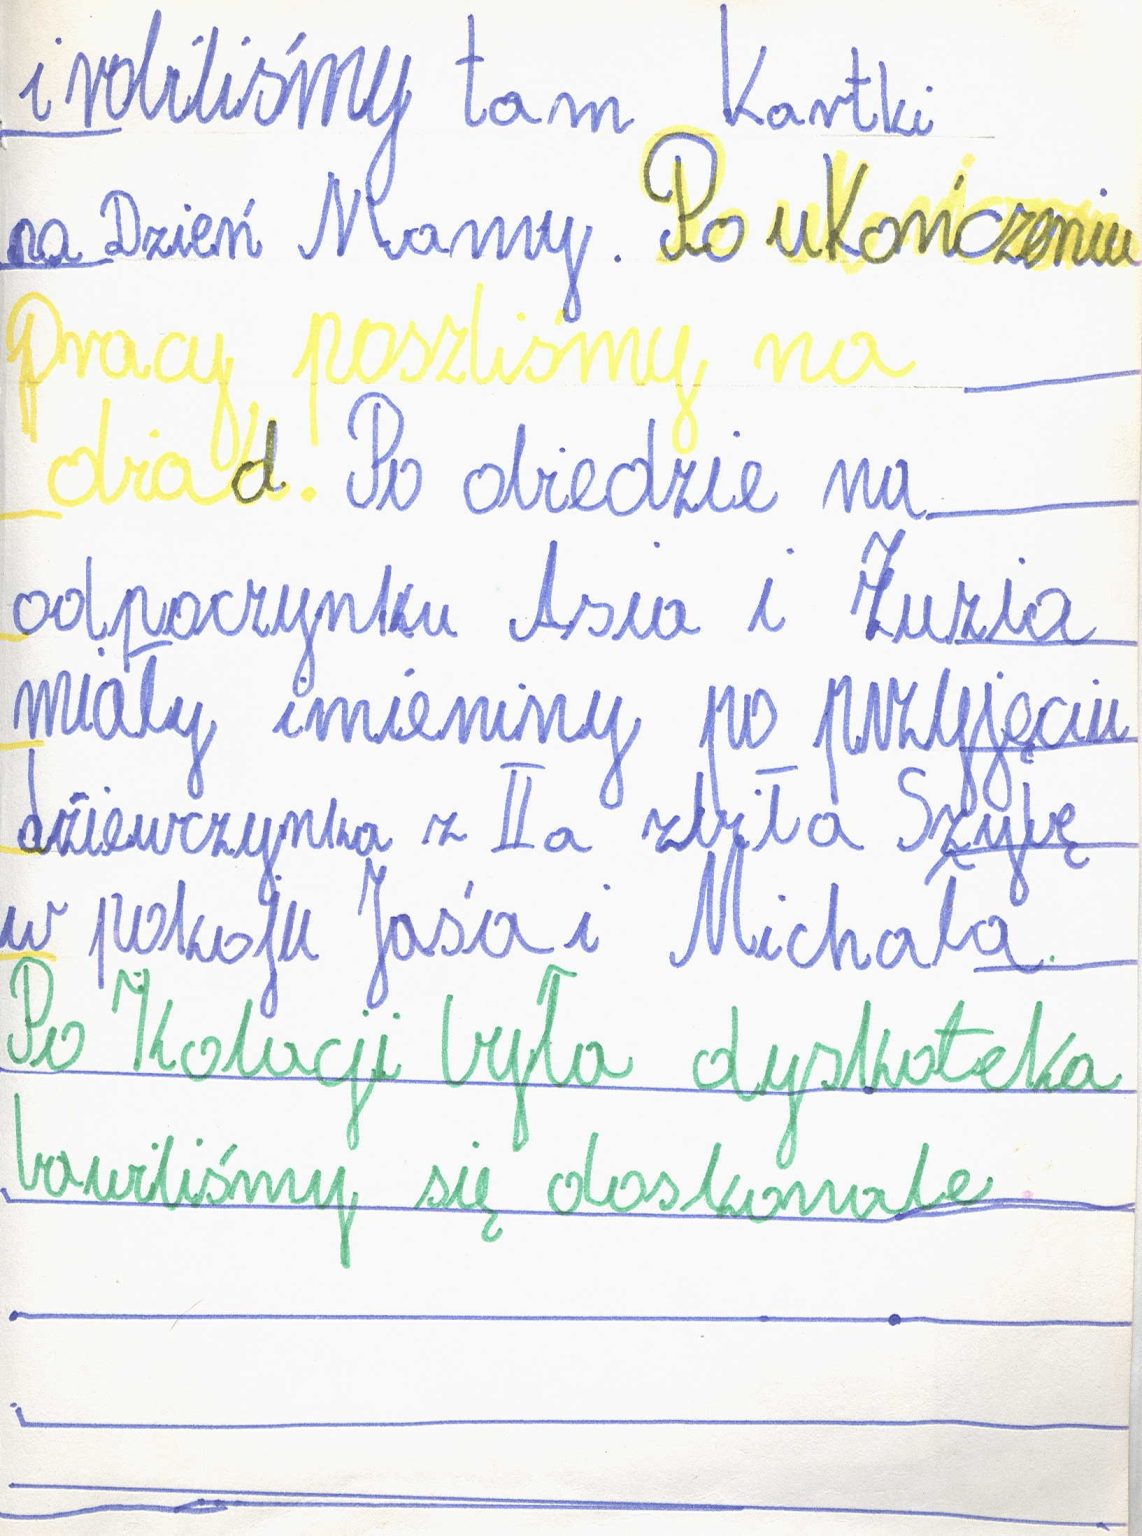 i robiliśmy tam kartki
na Dzień Mamy. Po ukończeniu
pracy poszliśmy na
obiad. Po obiedzie na
odpoczynku Asia i Zuzia
miały imieniny po przyjęciu
dziewczynka z IIa zbiła Szybę
w pokoju Jasia i Michała.
Po kolacji była dyskoteka
bawiliśmy się doskonale